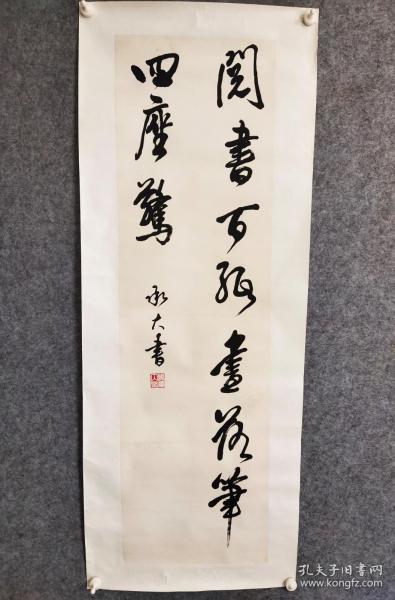 阅書百纸盡落筆
四座驚
承大書
孔夫子旧书网
www.kongfz.com